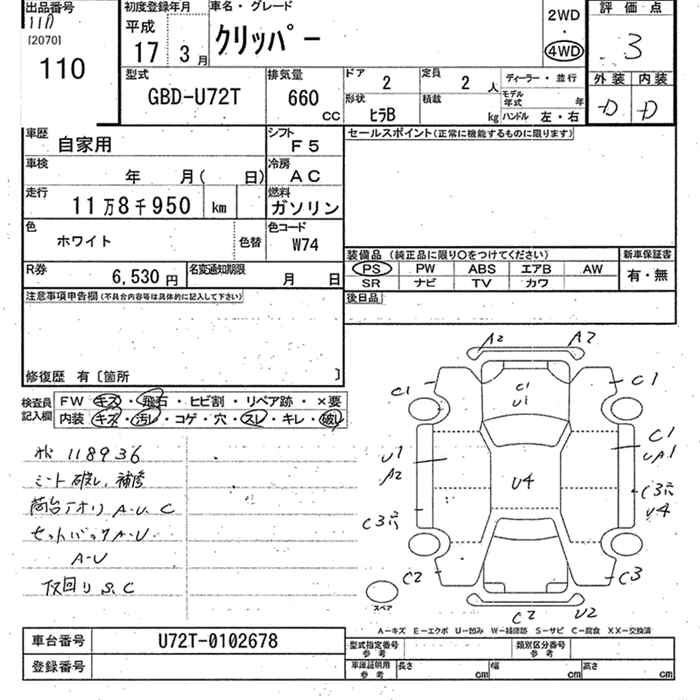 出品番号 初度登録年月 車名・グレード 評価点
110 平成 2WD
[2070] 17 3月 クリッパー ・ 3
110 4WD
型式 排気量 ドア 2 定員 2人 ディーラー・並行 外装 内装
GBD-U72T 660 CC 形状 ヒラB 積載 kg モデル年式 年 D D
ハンドル 左・右
車歴 自家用 シフト F5 セールスポイント(正常に機能するものに限ります)
車検 年 月( 日) 冷房 AC
走行 11万8千950 km 燃料 ガソリン
色 ホワイト 色替 色コード W74
装備品(純正品に限り○をつけてください) 新車保証書
R券 6,530円 名変通知期限 月 日 PS PW ABS エアB AW 有・無
SR ナビ TV カワ
注意事項申告欄(不具合内容等は具体的に記入して下さい) 後日品
修復歴 有〔箇所 〕
検査員記入欄 FW キズ・飛石・ヒビ割・リペア跡・×要
内装 キズ・汚レ・コゲ・穴・スレ・キレ・破レ
118936
シート破レ、補修
荷台アオリ A.U.C
セットバック A-U
A-U
下回り S.C
A2 A2
C1 C1 C1
U1
U1 C1
A2 UA1
U4
C3穴 C3穴
U4
C2 C3
スペア C2 U2
A-キズ E-エクボ U-凹み W-補修跡 S-サビ C-腐食 XX-交換済
車台番号 U72T-0102678 型式指定番号 参考 類別区分番号 参考
登録番号 車庫証明用 参考 長さ cm 幅 cm 高さ cm